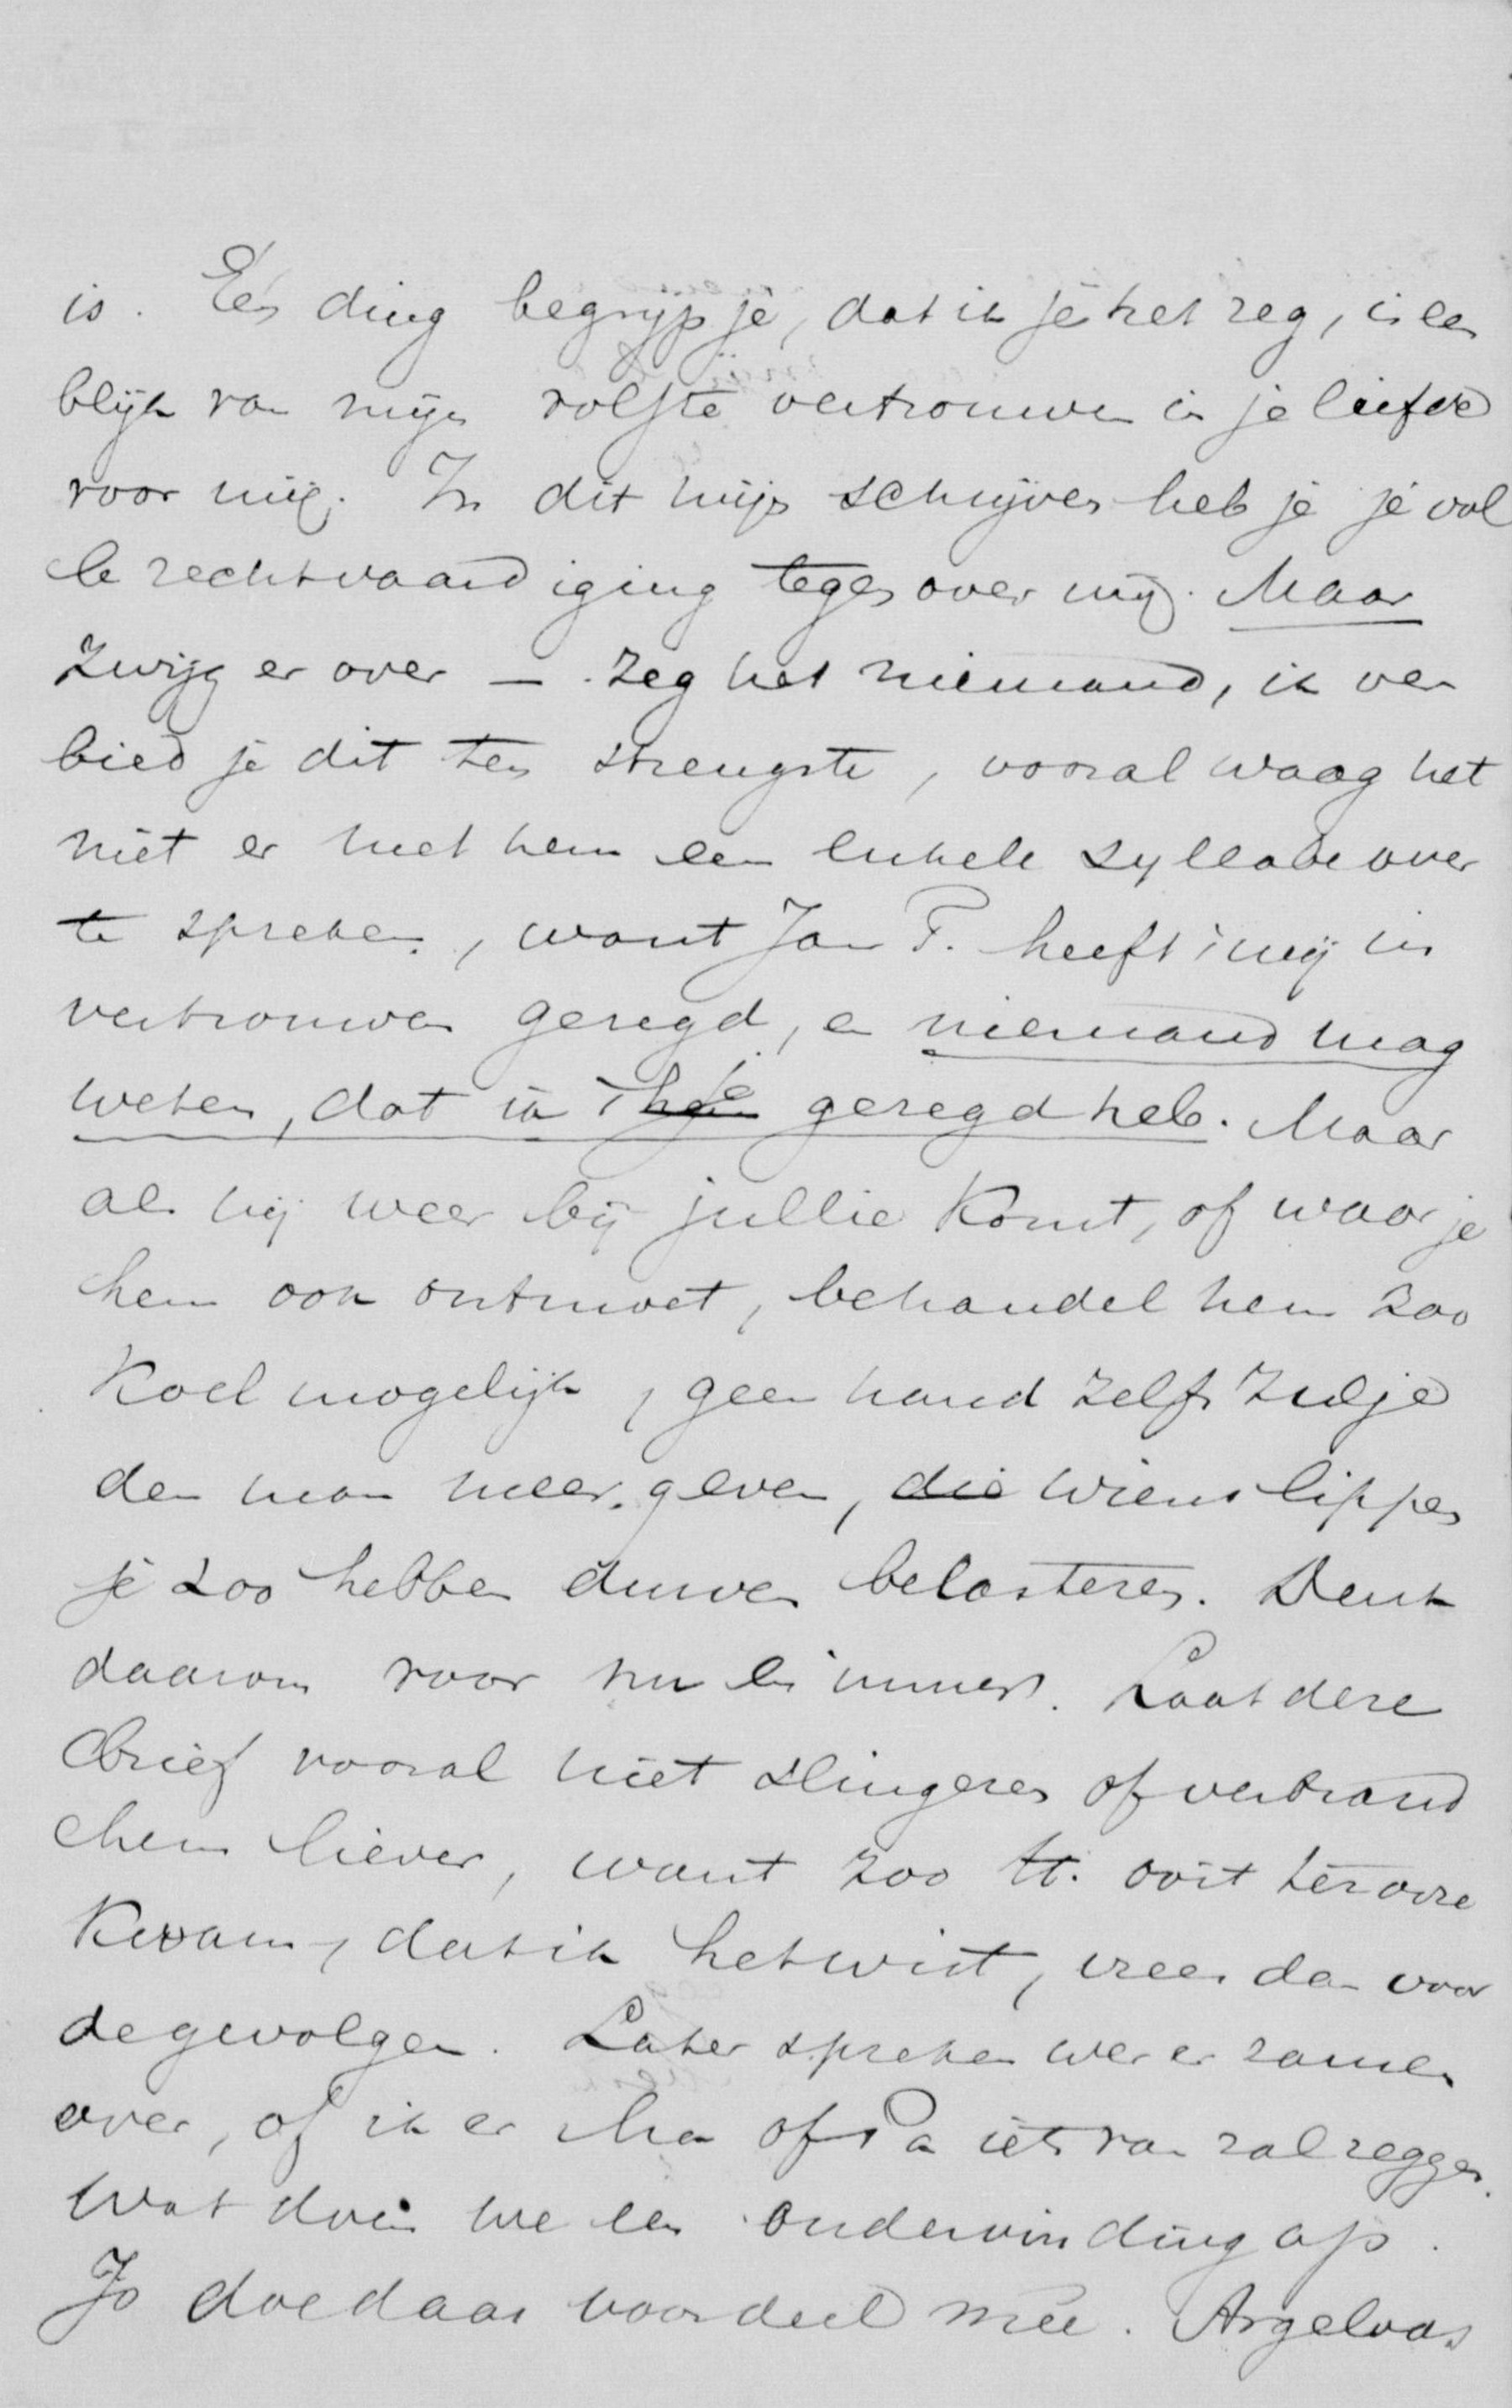 is. Één ding begrijp je, dat ik je het zeg, is een
blijk van mijn volste vertrouwen in je liefde
voor mij. In dit mijn schrijven heb je je vol
le rechtvaardiging tegenover mij. Maar
zwijg er over – zeg het niemand, ik ver
bied je dit ten strengste, vooral waag het
niet er met hem een enkele syllabe over
te spreken, want Jan P. heeft 't mij in
vertrouwen gezegd, en niemand mag
weten, dat ik 't je gezegd heb. Maar
als hij weer bij jullie komt, of waar je
hem ook ontmoet, behandel hem zoo
koel mogelijk, geen hand zelfs zul je
den man meer geven, die wiens lippen
je zoo hebben durven belasteren. Denk
daarom voor nu en immer. Laat deze
brief vooral niet slingeren of verbrand
hem liever, want zoo tt. ooit ter oore
kwam, dat ik het wist, vrees dan voor
de gevolgen. Later spreken we er samen
over, of ik er Ma of Pa iets van zal zeggen.
Wat doen we een ondervinding op.
Jo doe daar voordeel mee. Argeloos